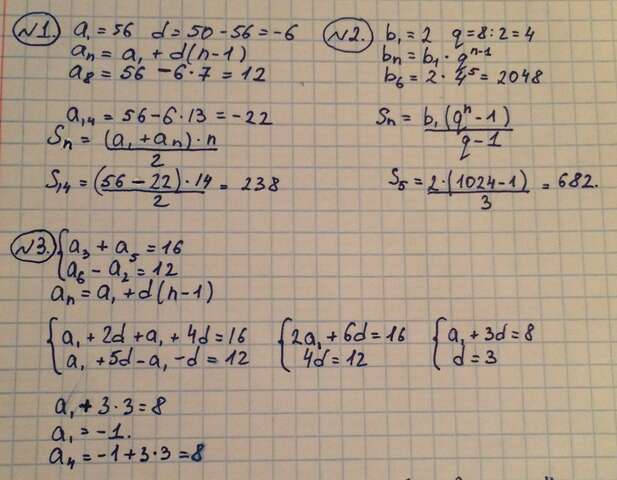 №1. a₁ = 56 d = 50 - 56 = -6
aₙ = a₁ + d(n-1)
a₈ = 56 - 6·7 = 12
a₁₄ = 56 - 6·13 = -22
Sₙ = (a₁ + aₙ)·n / 2
S₁₄ = (56 - 22)·14 / 2 = 238
№2. b₁ = 2 q = 8:2 = 4
bₙ = b₁ · qⁿ⁻¹
b₆ = 2 · 4⁵ = 2048
Sₙ = b₁(qⁿ - 1) / q - 1
S₅ = 2·(1024 - 1) / 3 = 682.
№3. { a₃ + a₅ = 16
a₆ - a₂ = 12
aₙ = a₁ + d(n-1)
{ a₁ + 2d + a₁ + 4d = 16 { 2a₁ + 6d = 16 { a₁ + 3d = 8
a₁ + 5d - a₁ - d = 12 4d = 12 d = 3
a₁ + 3·3 = 8
a₁ = -1.
a₄ = -1 + 3·3 = 8